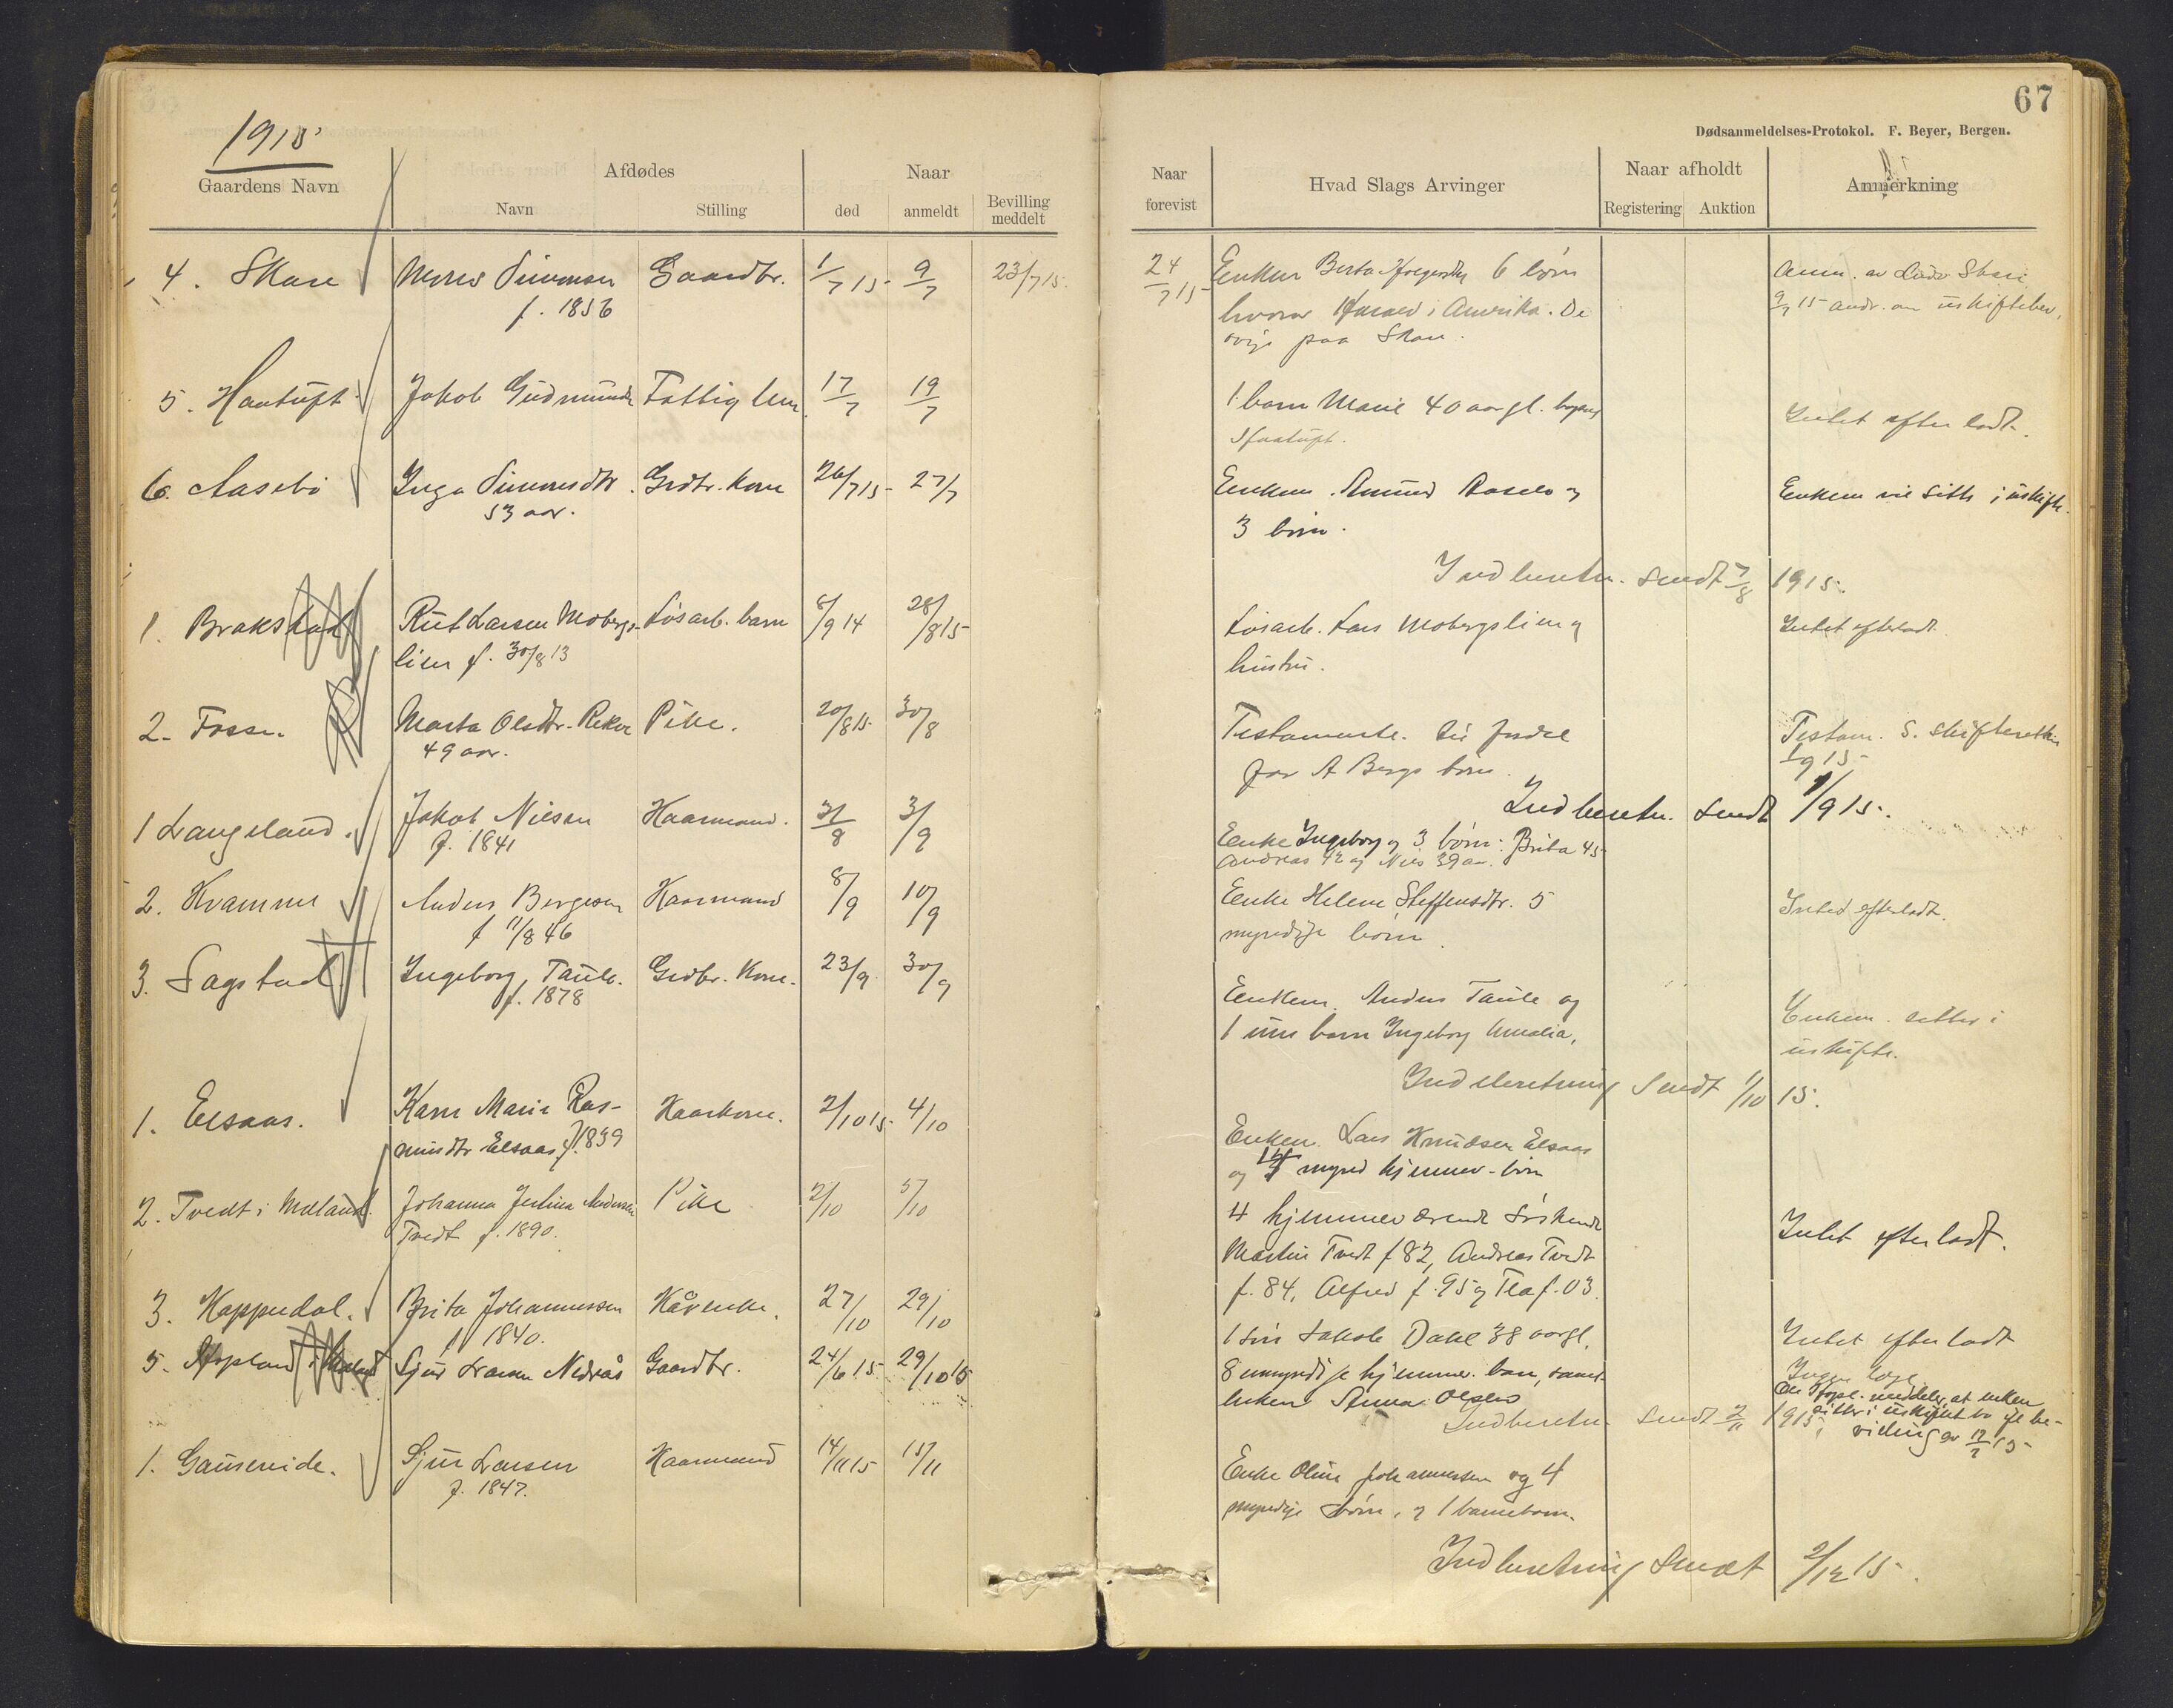 67
Dødsanmeldelses-Protokol. F. Beyer, Bergen.
1915
Gaardens Navn
Afdødes
Navn
Stilling
Naar
død
anmeldt
Bevilling
meddelt
Naar
forevist
Hvad Slags Arvinger
Naar afholdt
Registering
Auktion
Anmerkning
4. Skare
Simonsen
f. 1856
Gaardbr.
1/7 15
9/7
23/7 15.
24/7 15
Enken Berta 6 børn
hvorav i Amerika. De
øvrige paa Skare.
Anm. av Skare
9/7 15 andr. om uskiftebev.
5. Haatuft
Jakob Gudmunds
Fattiglem
17/7
19/7
1 barn Marie 40 aar gl.
Haatuft.
Intet efterladt.
6. Aasebø
Inga Simonsdtr.
53 aar.
Grdbr. kone
26/7 15
27/7
Enkem. Amund Aasebø og
3 børn.
Enkem vil sitte i uskifte.
Indberetn. sendt 7/8 1915.
1. Brakstad
Rut Larsen Mobergs-
lien f. 30/8 13
Løsarb. barn
8/9 14
28/8 15
Løsarb. Lars Mobergslien og
hustru.
Intet efterladt.
2. Fosse.
Marta Olsdtr. Reker
49 aar.
Pike.
20/8 15.
30/8
Testamente. til fordel
for A Bergs børn.
Testam. s. skifteretten
1/9 15
Indberetn. sendt 1/9 15.
1 Langeland.
Jakob Nilsen
f. 1841
Kaarmand.
31/8
3/9
Enke Ingeborg og 3 børn: Brita 45
Andreas 42 og Nils 39 aar.
2. Kvamme
Anders Bergesen
f 11/8 46
Kaarmand
8/9
10/9
Enke Helene Steffensdtr. 5
myndige børn.
Intet efterladt.
3. Sagstad
Ingeborg Taule.
f. 1878
Grdbr. Kone.
23/9
30/9
Enkem. Anders Taule og
1 um barn Ingeborg Amalia.
Enkem. sitter i
uskifte.
Indberetning sendt 1/10 15.
1. Elsaas.
Karn Marie Ras-
musdtr Elsaas f. 1839
Kaarkone.
2/10 15.
4/10
Enkem. Lars Knudsen Elsaas
og mynd hjemmev. børn
2. Tvedt i Meland.
Johanna Julina Andersen
Tvedt f. 1890.
Pike
2/10
5/10
4 hjemmeværende søskende
Martin Tvedt f 82, Andreas Tvedt
f. 84, Alfred f. 95 og Tea f. 03.
Intet efterladt.
3. Kappedal.
Brita Johannessen
f 1840.
Kårenke.
27/10
29/10
1 søn Jakob Dale 38 aar gl.
Intet efterladt
5. Hopland i
Sjur Larsen Nedrås
Gaardbr.
24/6 15.
29/10 15
8 umyndige hjemmev. barn, samt
enken Anna Olsen
Ingen
meddeler, at enken
sitter i uskiftet bo ifl be-
villing av
Indberetn. sendt 2/11 1915.
1. Gausereide.
Sjur Larsen
f. 1847.
Kaarmand
14/11 15
15/11
Enke Oline Johannessen og 4
myndige børn, og 1 barnebarn.
Indberetning sendt 2/12 15.